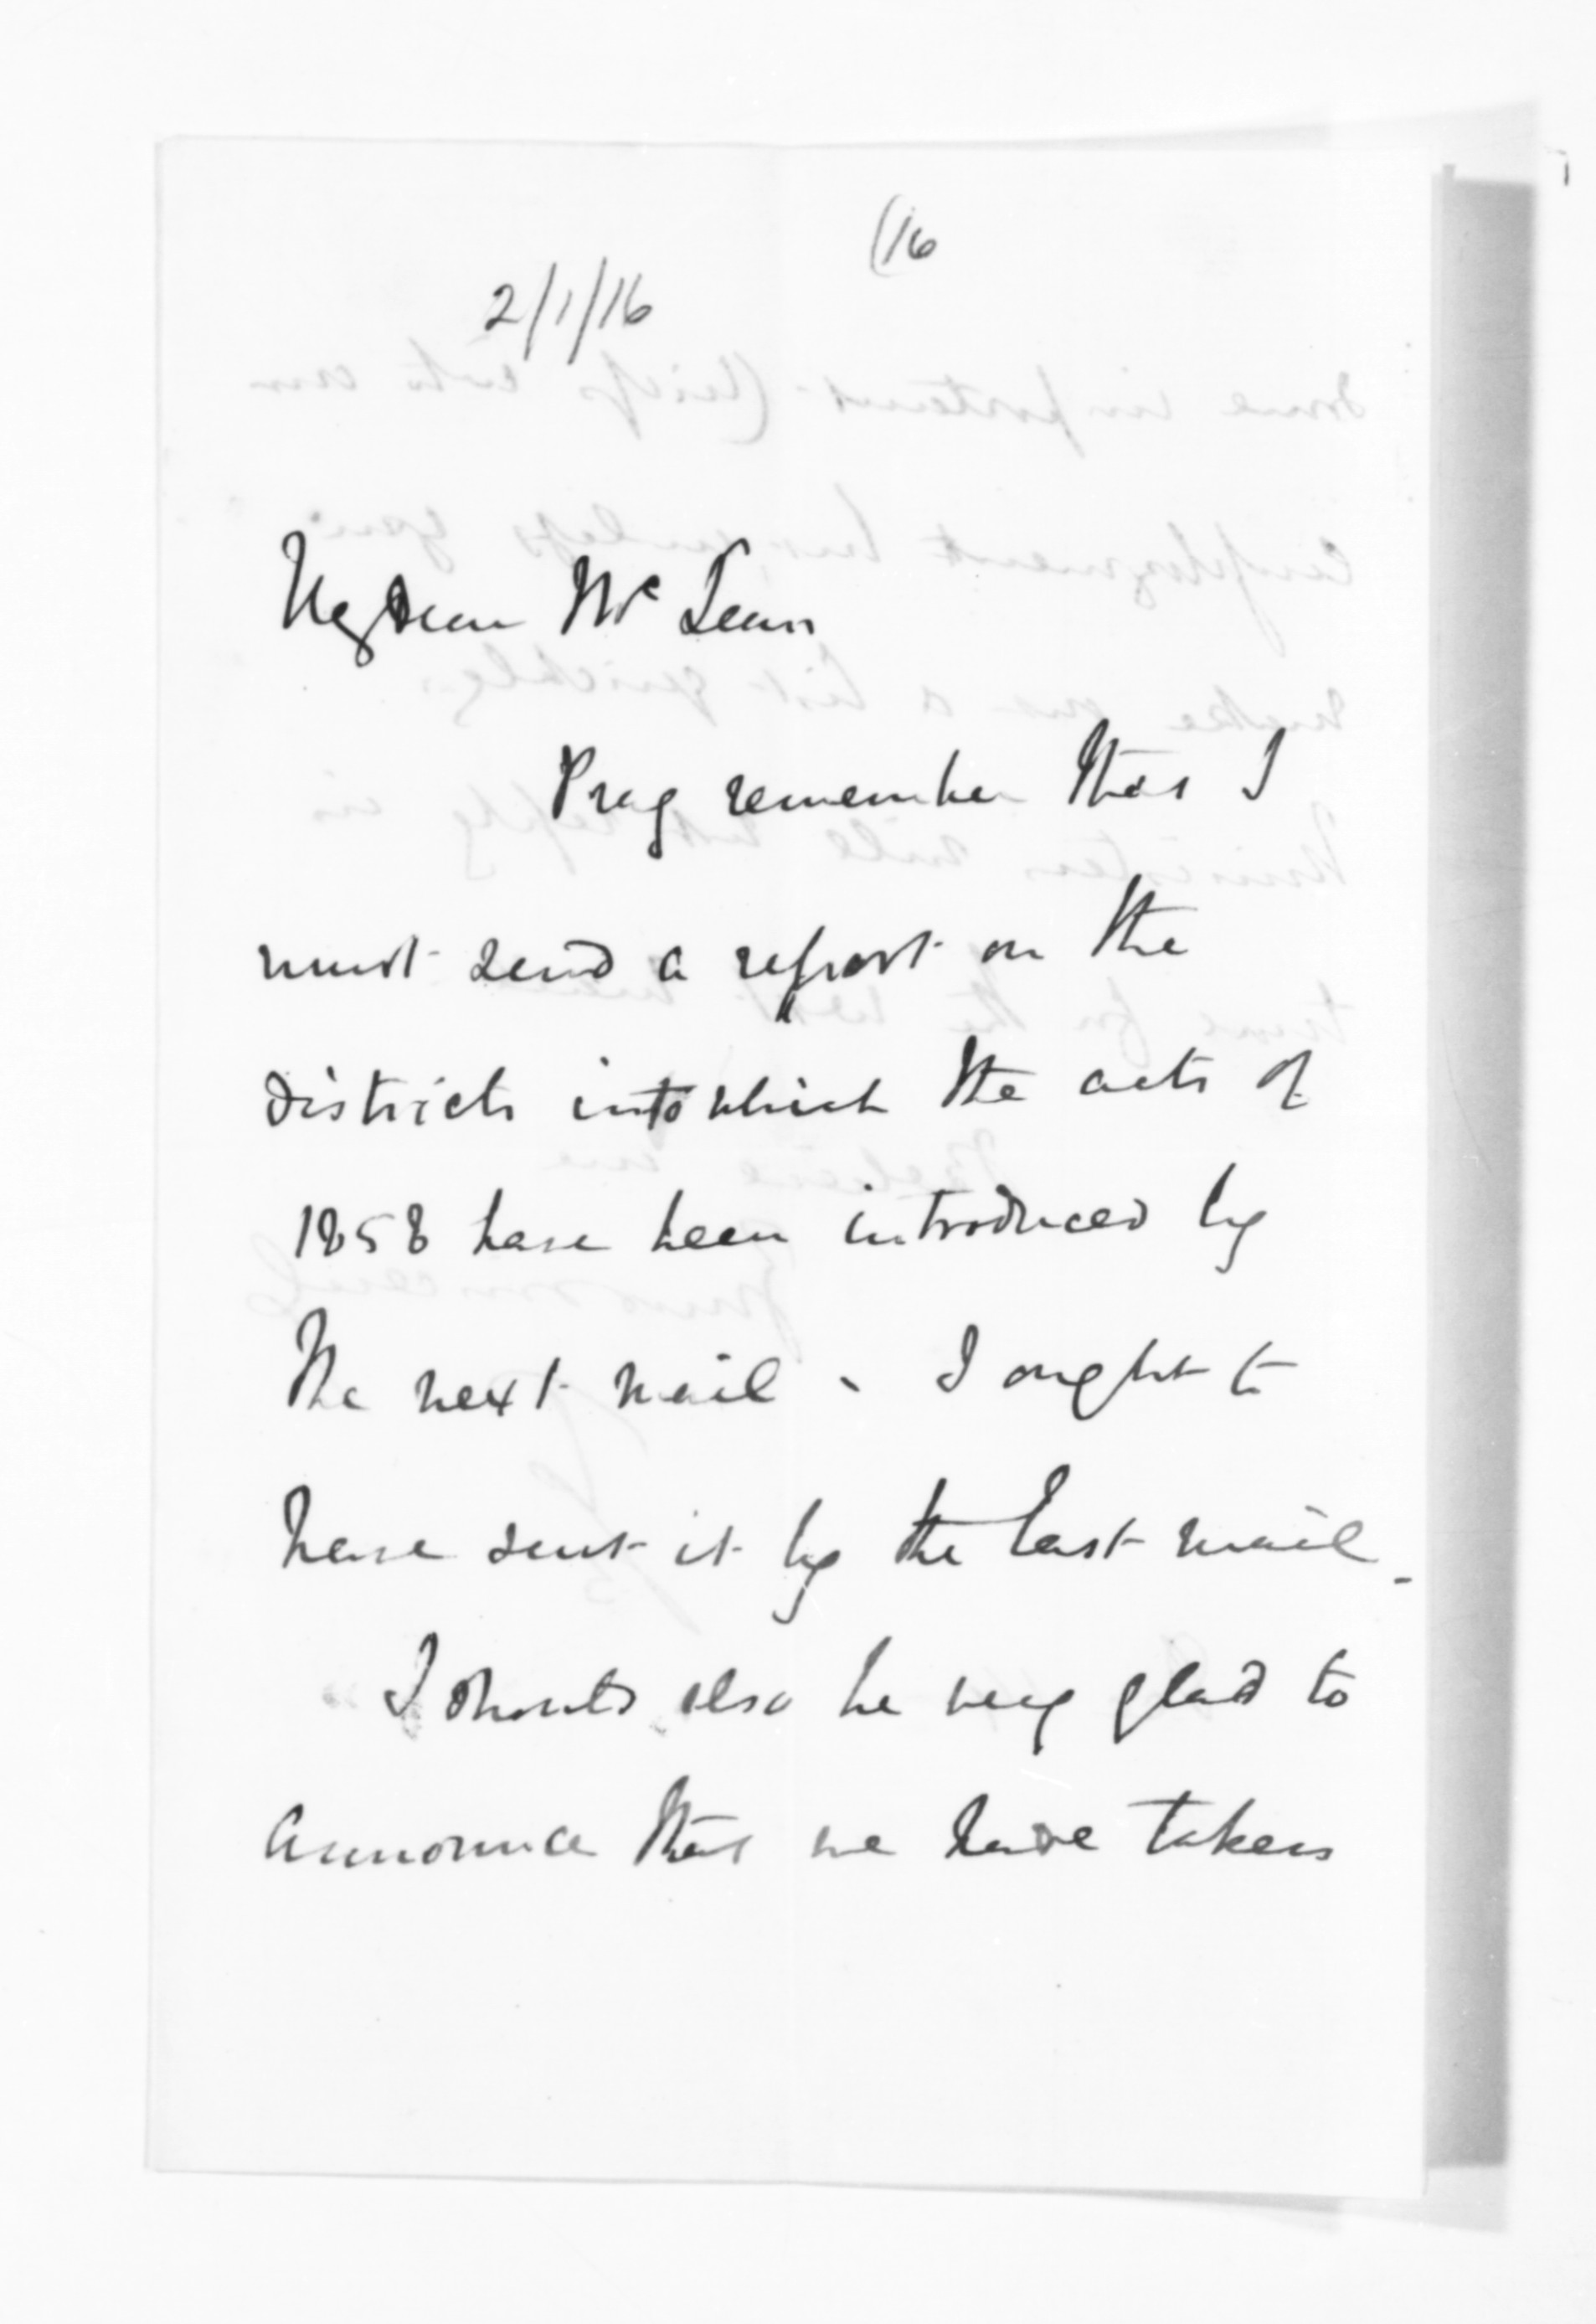 (16
2/1/16
My dear Mc Lean
Pray remember that I
must send a report on the
districts into which the acts of
1858 have been introduced by
the next mail. I ought to
have sent it by the last mail.
I should also be very glad to
announce that we have taken